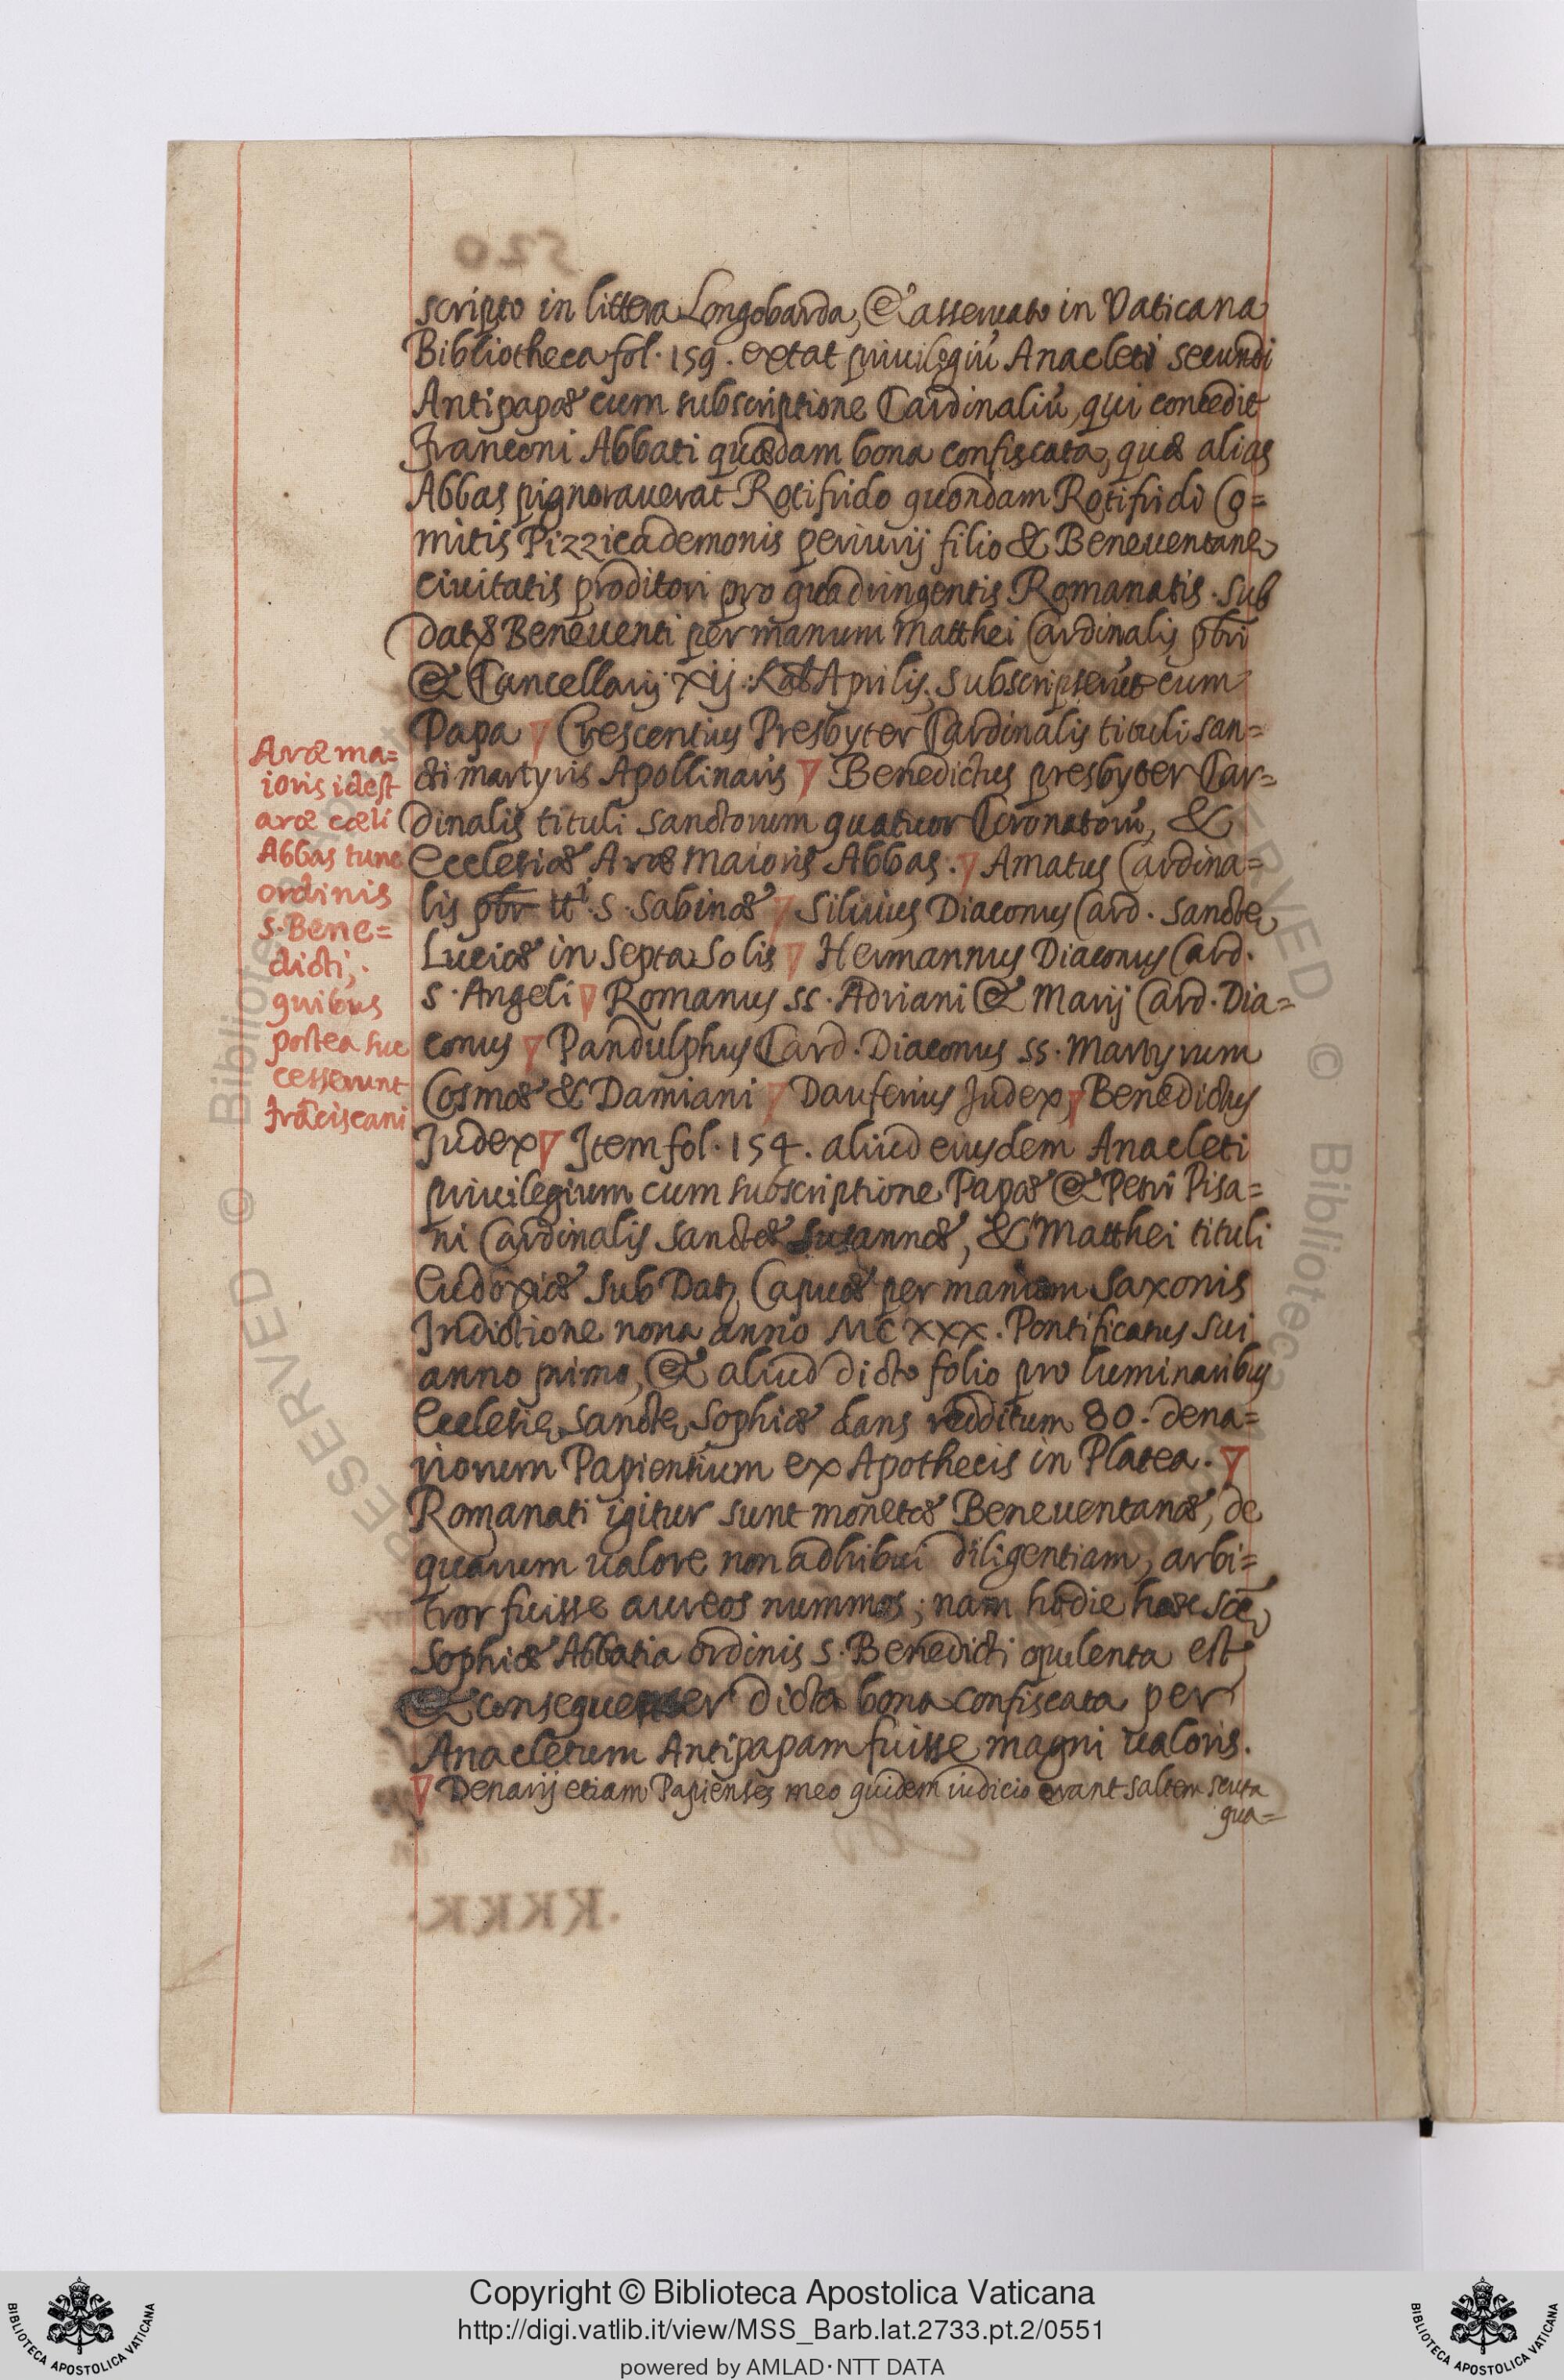 scripto in littera Longobarda, & asseruato in Vaticana
Bibliotheca fol. 159. extat priuilegiũ Anacleti secundi
Antipapæ cum subscriptione Cardinaliũ, qui concedit
Franconi Abbati quædam bona confiscata, quæ alias
Abbas pignorauerat Rotifrido quondam Rotifridi Co=
mitis Pizzicademonis periurij filio & Beneuentanę
ciuitatis proditori pro quadringentis Romanatis. sub
Datę Beneuenti per manum Matthei Cardinalis pbrĩ
& Cancellarij xij. Kal Aprilis. subscripserũt cum
Papa ∇ Crescentius Presbyter Cardinalis tituli san=
cti martyris Apollinaris ∇ Benedictus presbyter Car=
dinalis tituli sanctorum quatuor Coronatorũ, &
Ecclesiæ Aræ maioris Abbas. ∇ Amatus Cardina=
lis pbr tti. S. Sabinæ ∇ Siluius Diaconus Card. sanctę
Luciæ in septa solis ∇ Hermannus Diaconus Card.
S. Angeli ∇ Romanus ss. Adriani & Marij Card. Dia=
conus ∇ Pandulphus Card. Diaconus ss. Martyrum
Cosmæ & Damiani ∇ Dauferius Judex ∇ Benedictus
Judex ∇ Item fol. 154. aliud eiusdem Anacleti
priuilegium cum subscriptione Papæ & Petri Pisa=
ni Cardinalis sanctæ susannæ, & Matthei tituli
Eudoxiæ sub Datę Capuæ per manum Saxonis
Indictione nona anno MCXXX. Pontificatus sui
anno primo, & aliud dicto folio pro luminaribus
Ecclesię sanctę Sophiæ dans redditum 80. dena=
riorum Papiensium ex Apothecis in Platea. ∇
Romanati igitur sunt monetæ Beneuentanæ, de
quarum ualore non adhibui diligentiam, arbi=
tror fuisse aureos nummos; nam hodie hæc Scę
Sophiæ Abbatia ordinis S. Benedicti opulenta est
& consequenter dicta bona confiscata per
Anacletum Antipapam fuisse magni ualoris.
∇ Denarij etiam Papienses meo quidem iudicio erant saltem scuta
qua=
Aræ ma=
ioris idest
aræ cæli
Abbas tunc
ordinis
S. Bene=
dicti,
quibus
postea suc
cesserunt
frãciscani
Copyright © Biblioteca Apostolica Vaticana
http://digi.vatlib.it/view/MSS_Barb.lat.2733.pt.2/0551
powered by AMLAD·NTT DATA
BIBLIOTECA APOSTOLICA VATICANA
BIBLIOTECA APOSTOLICA VATICANA